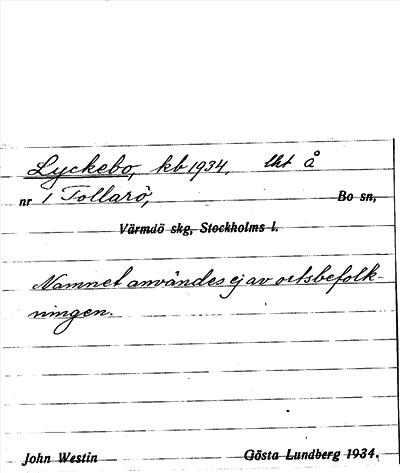 Lyckebo, kb 1934, lht å
nr 1 Tollarö, Bo sn,
Värmdö skg, Stockholms l.
Namnet användes ej av ortsbefolk-
ningen.
John Westin Gösta Lundberg 1934.